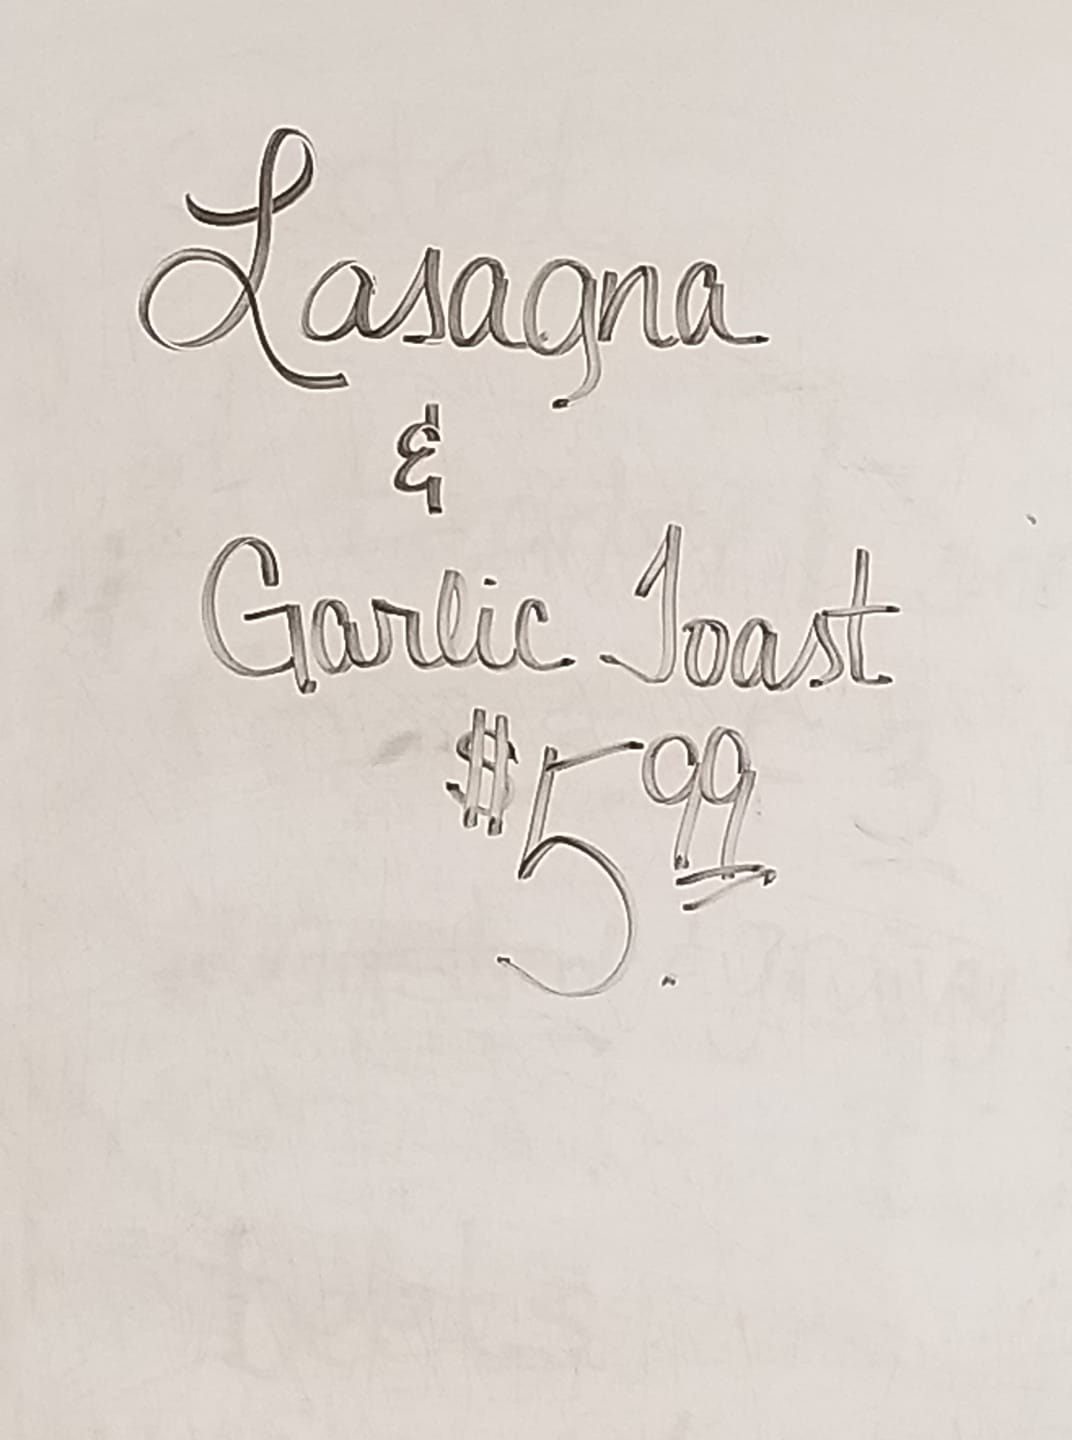 Lasagna
&
Garlic Toast
$5.99